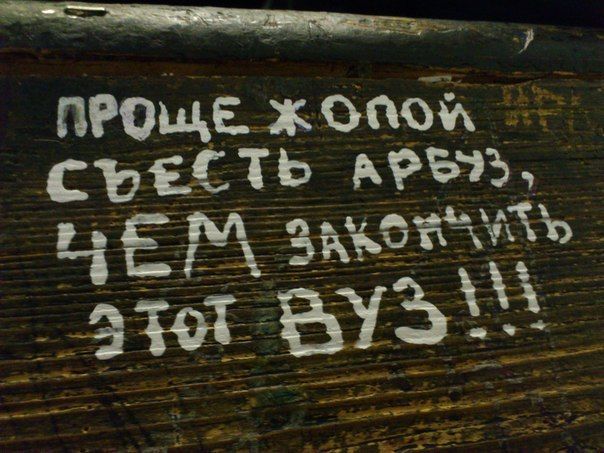 ПРОЩЕ ЖОПОЙ
СЪЕСТЬ АРБУЗ,
ЧЕМ ЗАКОНЧИТЬ
ЭТОТ ВУЗ!!!